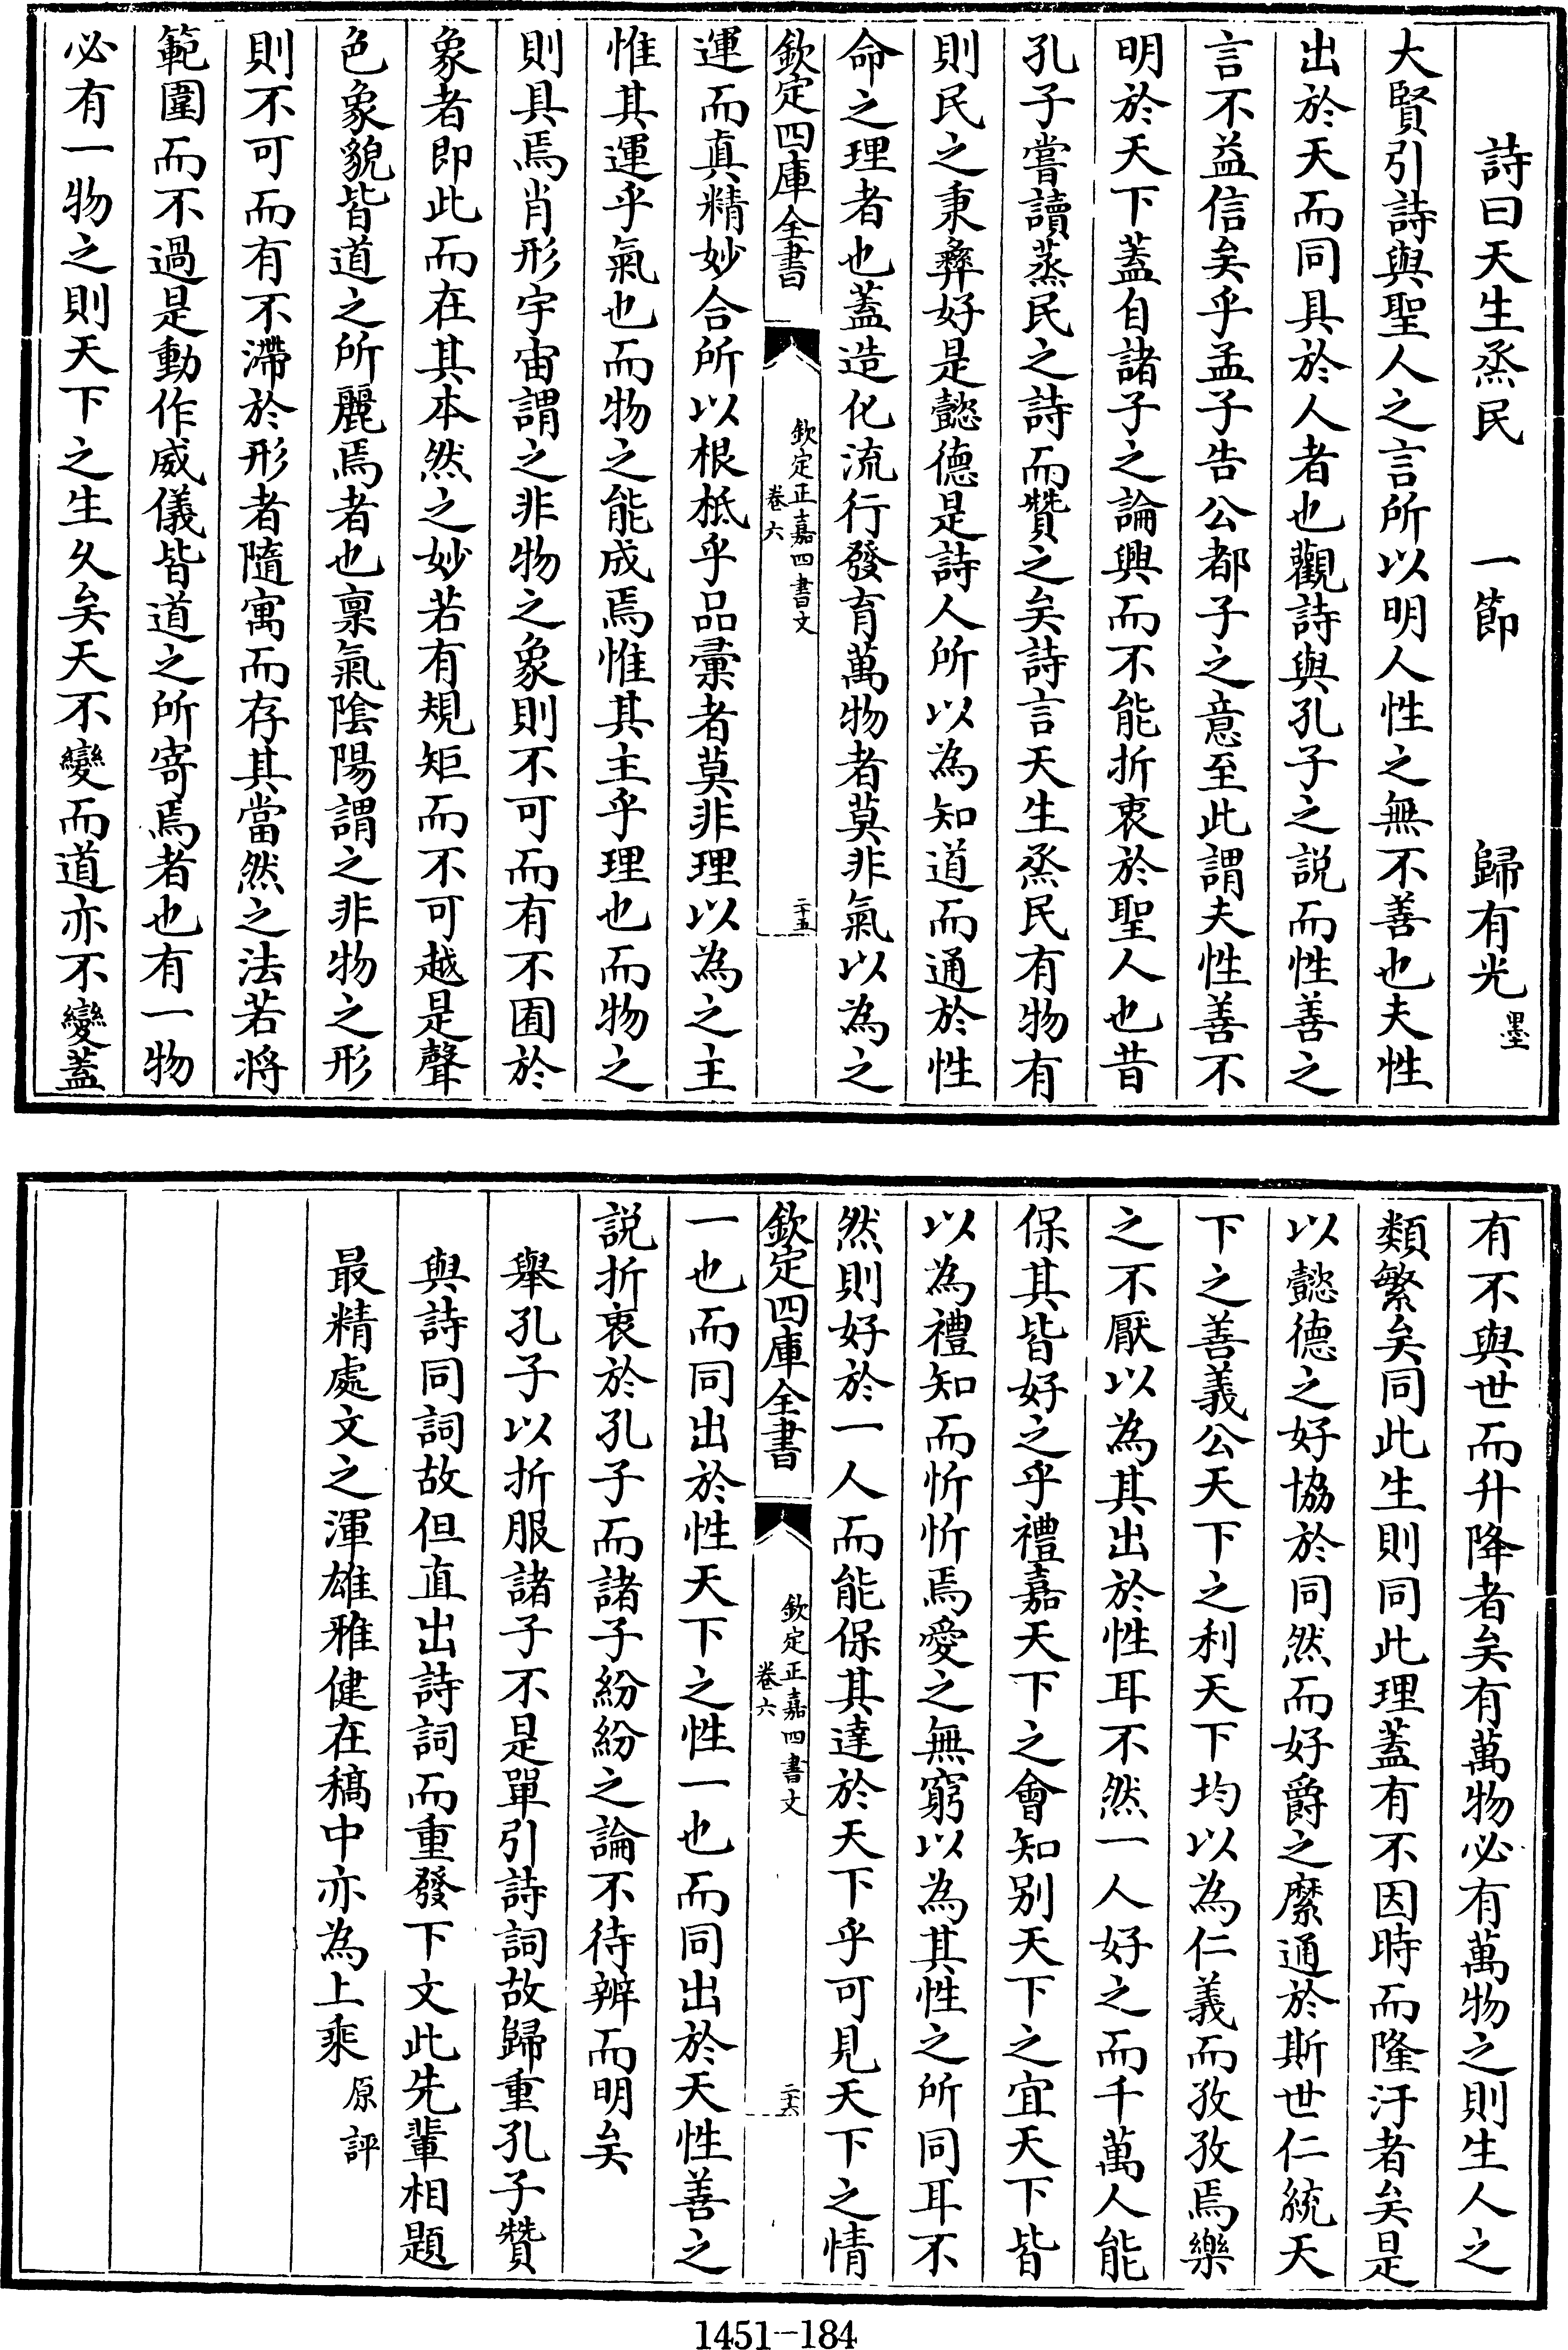 詩曰天生烝民　一節　歸有光墨
大賢引詩與聖人之言所以明人性之無不善也夫性
出於天而同具於人者也觀詩與孔子之説而性善之
言不益信矣乎孟子告公都子之意至此謂夫性善不
明於天下蓋自諸子之論興而不能折衷於聖人也昔
孔子嘗讀蒸民之詩而贊之矣詩言天生烝民有物有
則民之秉彝好是懿德是詩人所以為知道而通於性
命之理者也蓋造化流行發育萬物者莫非氣以為之
欽定四庫全書
欽定正嘉四書文
卷六
二十五
運而真精妙合所以根柢乎品彙者莫非理以為之主
惟其運乎氣也而物之能成焉惟其主乎理也而物之
則具焉肖形宇宙謂之非物之象則不可而有不囿於
象者即此而在其本然之妙若有規矩而不可越是聲
色象貌皆道之所麗焉者也稟氣陰陽謂之非物之形
則不可而有不滯於形者隨寓而存其當然之法若將
範圍而不過是動作威儀皆道之所寄焉者也有一物
必有一物之則天下之生久矣天不變而道亦不變蓋
有不與世而升降者矣有萬物必有萬物之則生人之
類繁矣同此生則同此理蓋有不因時而隆汙者矣是
以懿德之好協於同然而好爵之縻通於斯世仁統天
下之善義公天下之利天下均以為仁義而孜孜焉樂
之不厭以為其出於性耳不然一人好之而千萬人能
保其皆好之乎禮嘉天下之會知别天下之宜天下皆
以為禮知而忻忻焉愛之無窮以為其性之所同耳不
然則好於一人而能保其達於天下乎可見天下之情
欽定四庫全書
欽定正嘉四書文
卷六
二十六
一也而同出於性天下之性一也而同出於天性善之
説折衷於孔子而諸子紛紛之論不待辨而明矣
舉孔子以折服諸子不是單引詩詞故歸重孔子贊
與詩同詞故但直出詩詞而重發下文此先輩相題
最精處文之渾雄雅健在稿中亦為上乘原評
1451-184